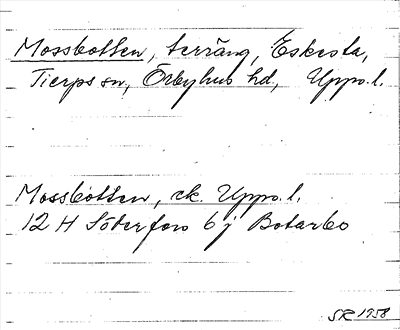 Mossbotten, terräng, Eskesta,
Tierps sn, Örbyhus hd, Upps. l.
Mossbotten, ek. Upps. l.
12 H Söderfors 6 j Botarbo
SR 1958